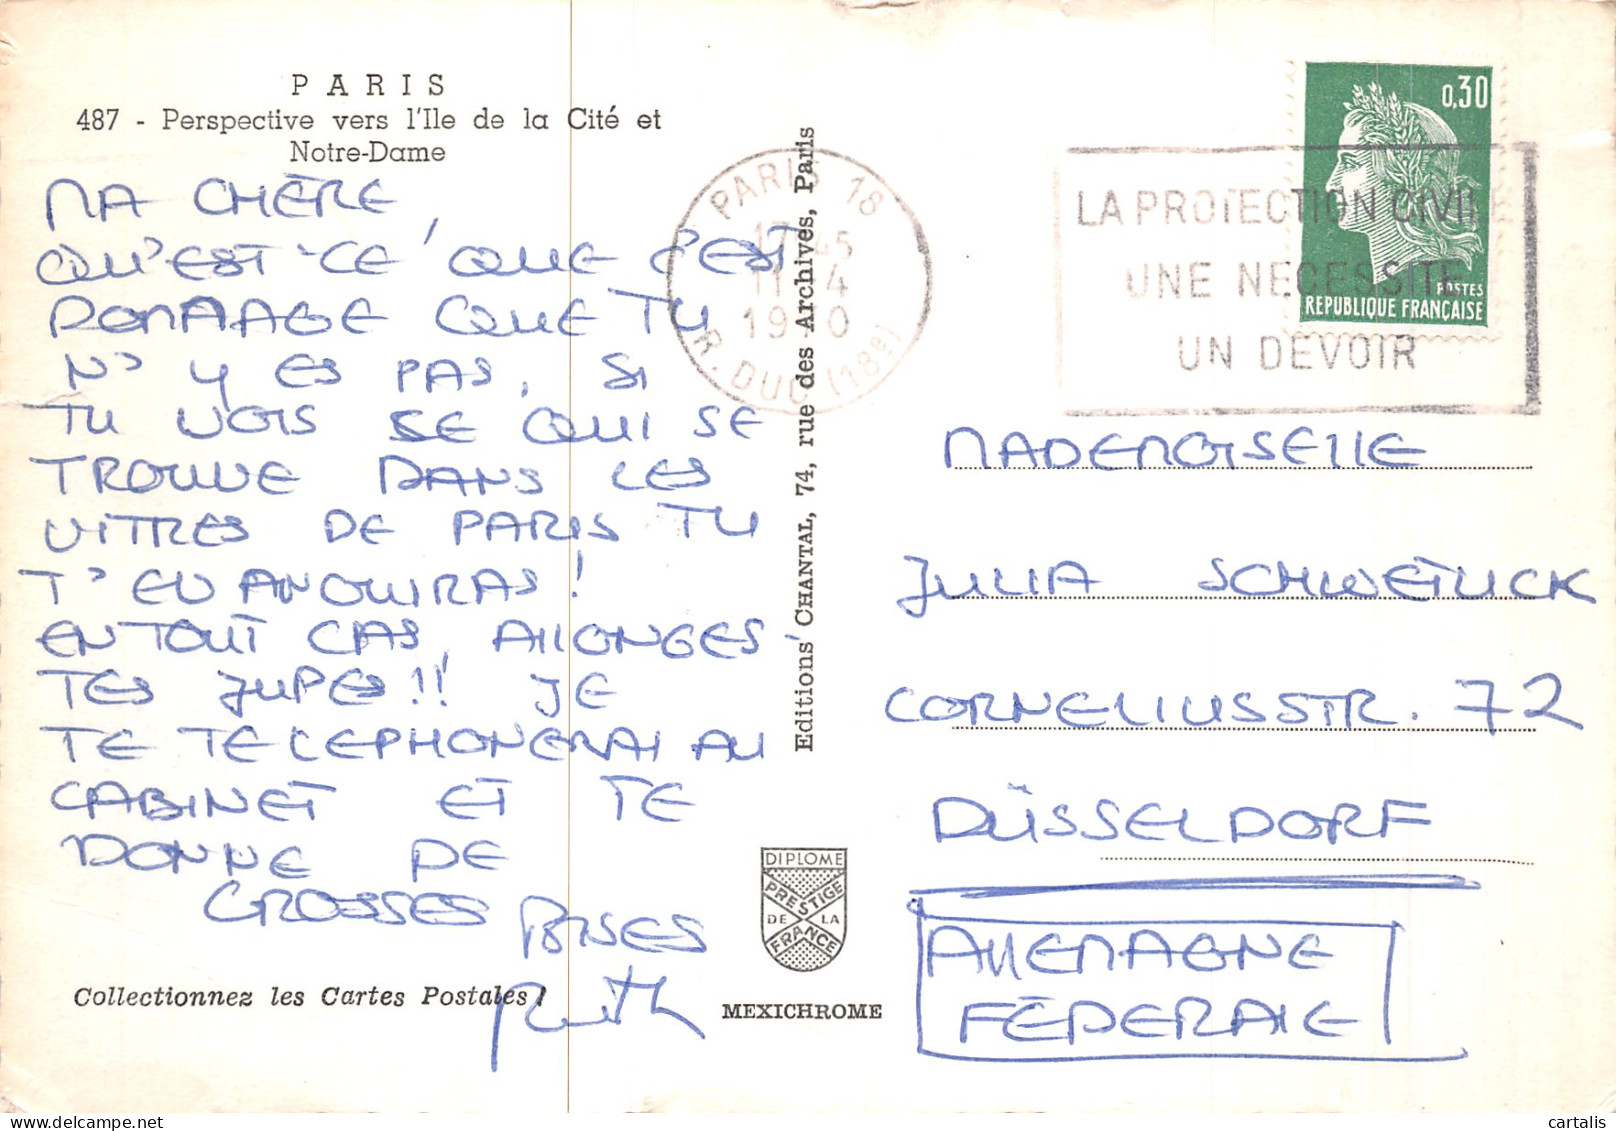 PARIS
487 - Perspective vers l'Ile de la Cité et
Notre-Dame
MA CHÈRE,
QU'EST-CE QUE C'EST
DOMMAGE QUE TU
N'Y ES PAS, SI
TU VOIS SE QUI SE
TROUVE DANS LES
VITRES DE PARIS TU
T'EVANOUIRAS!
EN TOUT CAS, AllONGES
TES JUPES!! JE
TE TELEPHONERAI AU
CABINET ET TE
DONNE DE
GROSSES BISES
Ruth
Collectionnez les Cartes Postales !
Editions CHANTAL, 74, rue des Archives, Paris
DIPLOME
PRESTIGE
DE LA
FRANCE
MEXICHROME
PARIS 18
17 45
11 4
19 0
R. DUC (18e)
LA PROTECTION CIVILE
UNE NECESSITE
UN DEVOIR
0,30
POSTES
REPUBLIQUE FRANÇAISE
MADEMOISEllE
JULIA SCHWETLICK
CORNELIUSSTR. 72
DÜSSELDORF
AllEMAGNE
FÉDERAlE
© cartalis
www.delcampe.net